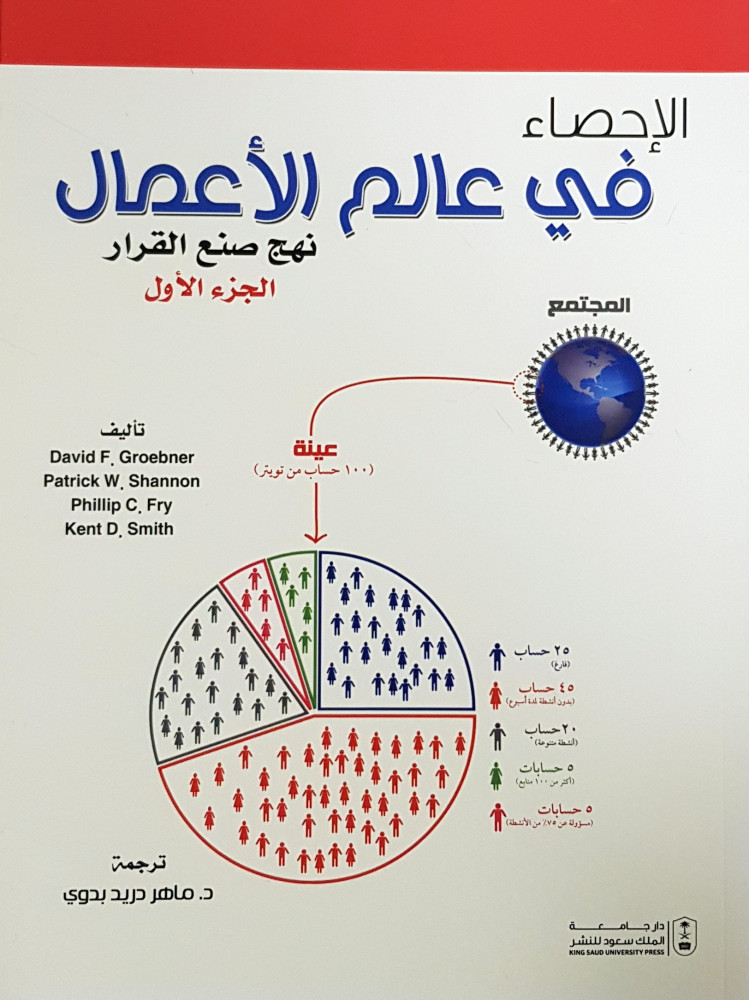 الإحصاء
في عالم الأعمال
نهج صنع القرار
الجزء الأول
المجتمع
عينة
(١٠٠ حساب من تويتر)
تأليف
David F. Groebner
Patrick W. Shannon
Phillip C. Fry
Kent D. Smith
٢٥ حساب
(فارغ)
٤٥ حساب
(بدون أنشطة لمدة أسبوع)
٢٠حساب
(أنشطة متنوعة)
٥ حسابات
(أكثر من ١٠٠ متابع)
٥ حسابات
(مسؤولة عن ٧٥٪ من الأنشطة)
ترجمة
د. ماهر دريد بدوي
دار جامعة
الملك سعود للنشر
KING SAUD UNIVERSITY PRESS